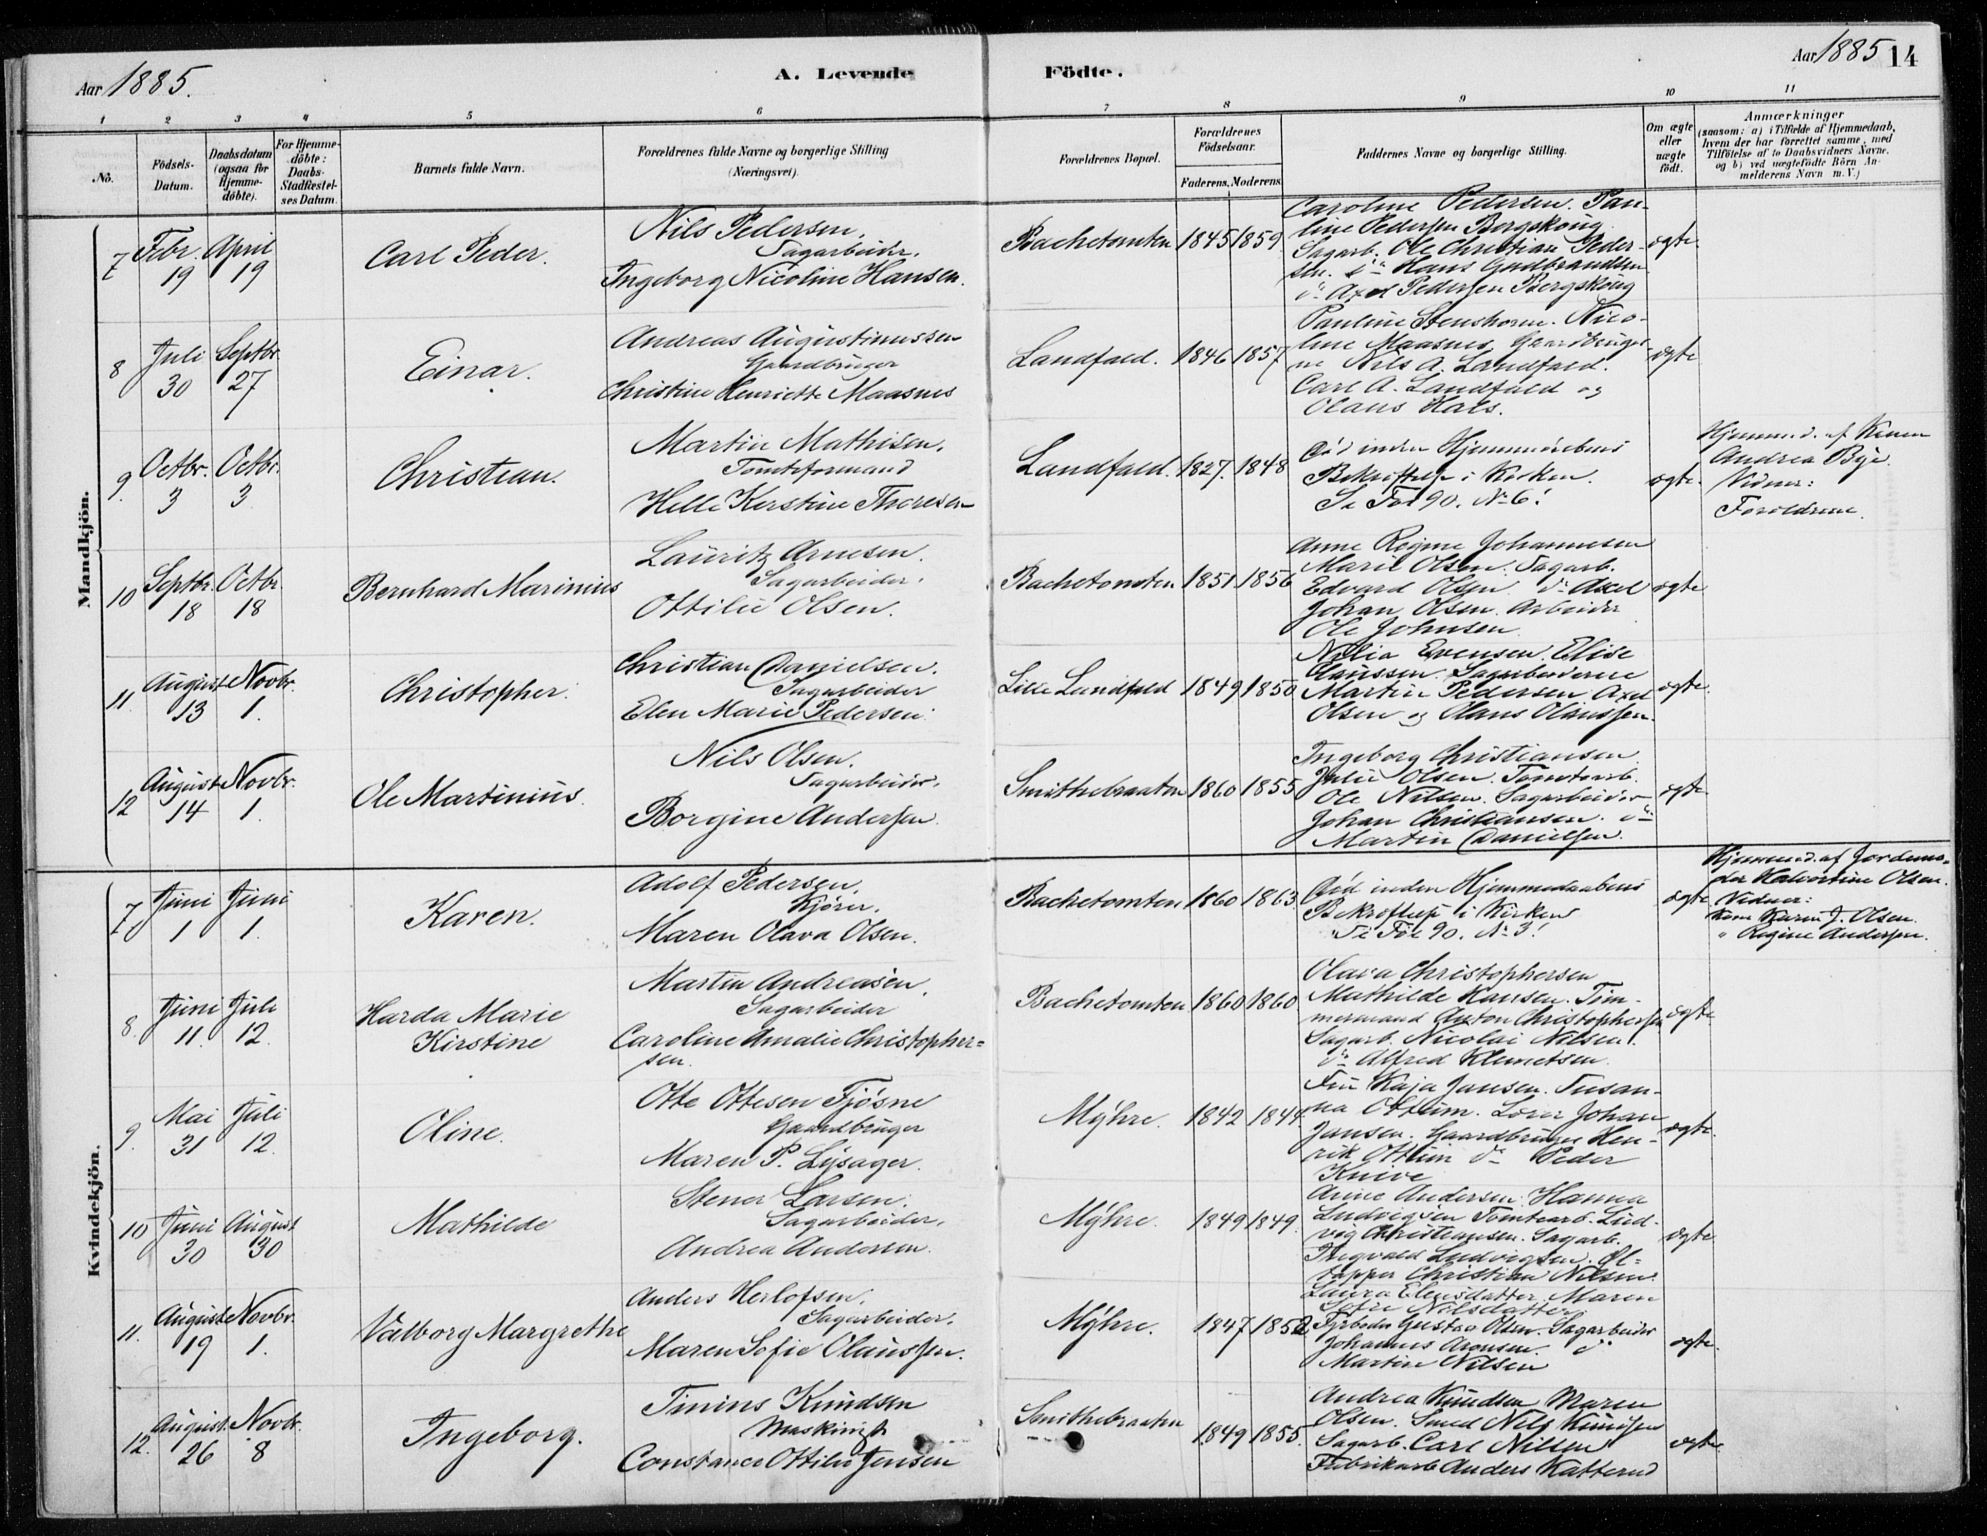 Aar 1885.
A. Levende Födte.
Aar 1885 14
1 2 3 4 5 6 7 8 9 10 11
No.
Födsels-Datum.
Daabsdatum (ogsaa for Hjemme-döbte).
For Hjemme-döbte: Daabs-Stadfæstel-ses Datum.
Barnets fulde Navn.
Forældrenes fulde Navne og borgerlige Stilling (Næringsvei).
Forældrenes Bopæl.
Forældrenes Födselsaar.
Faderens. Moderens.
Faddernes Navne og borgerlige Stilling.
Om ægte eller uægte födt.
Anmærkninger
(saasom: a) i Tilfælde af Hjemmedaab,
hvem der har forrettet samme, med
Tilföielse af to Daabsvidners Navne.
og b) ved uægtefödte Börn An-
melderens Navn m. V.)
Mandkjön.
7 Febr. 19 April 19
Carl Peder.
Nils Pedersen.
Sagarbeider.
Ingeborg Nicoline Hansen.
Bachetomten 1845 1859
Caroline Pedersen. Pau-
line Pedersen Bergskoug
Sagarb. Ole Christian Peder-
sen. do Hans Gudbrandsen
do Axel Pedersen Bergskoug
ægte
8 Juli 30 Septbr. 27
Einar.
Andreas Augustinussen
Gaardbruger
Christine Henriette Maasnes
Landfald. 1846 1857
Pauline Stenshorne. Nico-
line Maasnes. Gaardbruger-
ne Nils A. Landfald.
Carl A. Landfald og
Olaus Hals.
ægte
9 Octbr. 3 Octbr. 3
Christian.
Martin Mathisen.
Tomteformand
Helle Kerstine Thoresen
Landfald. 1827. 1848
Død inden Hjemmedaabens
Bekræftelse i Kirken.
Se Fol 90. No 6.
ægte.
Hjemmed. af Konen
Andrea Bye.
Vidner:
Forældrene.
10 Septbr. 18 Octbr. 18
Bernhard Marinius
Lauritz Arnesen.
Sagarbeider.
Ottilie Olsen.
Bachetomten 1851 1856
Anne Regine Johannesen
Marie Olsen. Sagarb.
Edvard Olsen. do Axel
Johan Olsen. Arbeider
Ole Johnsen
ægte
11 August 13 Novbr. 1.
Christopher.
Christian Danielsen.
Sagarbeider
Elen Marie Pedersen.
Lille Landfald 1849 1850
Evensen. Elise
Claussen. Sagarbeiderne
Martin Pedersen Axel
Olsen og Olaus Olaussen.
ægte.
12 August 14 Novbr. 1.
Ole Martinius.
Nils Olsen.
Sagarbeider.
Borgine Andersen.
Smithebraaten 1860 1855
Ingeborg Christiansen.
Julie Olsen. Tomtearb.
Ole Nilsen. Sagarbeider
Johan Christiansen. do
Martin Danielsen.
ægte
Kvindekjön.
7 Juni 1 Juni 1.
Karen.
Adolf Pedersen.
Kjører.
Maren Olava Olsen.
Bachetomten 1860 1863
Død inden Hjemmedaabens
Bekræftelse i Kirken
Se Fol 90. No 3.
ægte
Hjemmed. af Jordemo-
der Halvordine Olsen.
Vidner:
Kone Karen J. Olsen.
" Regine Andersen.
8 Juni 11. Juli 12.
Harda Marie
Kirstine
Martin Andreasen.
Sagarbeider
Caroline Amalie Christopher=
sen.
Bachetomten 1860 1860
Olava Christophersen
Mathilde Hansen. Töm-
mermand Anton Christophersen
Sagarb. Nicolai Nilsen.
do Alfred Klemetsen.
ægte
9. Mai 31 Juli 12.
Oline.
Otte Ottesen Fjösne
Gaardbruger
Maren P. Lysager.
Myhre. 1842 1844
Fru Kaja Jansen. Susan-
na Ottum. Lærer Johan
Jansen. Gaardbruger Hen-
rik Ottum do Peder
Knive
ægte.
10 Juni 30 August 30
Mathilde
Stener Larsen.
Sagarbeider.
Andrea Andersen.
Myhre. 1849 1849.
Anne Andersen. Hanna
Ludvigsen Tomtearb. Lud-
vig Christiansen. Sagarb.
Thigvald Ludvigsen. Öl-
tapper Christian Nilsen.
ægte
11. August 19 Novbr. 1.
Valborg Margrethe
Anders Herlofsen.
Sagarbeider.
Maren Sofie Olaussen.
Myhre. 1847 1852
Laura Elensdatter. Maren
Sofie Nilsdatter.
Fyrbøder Gustav Olsen. Sagarbeider
Johannes Aronsen. do
Martin Nilsen
ægte.
12. August 26 Novbr. 8
Ingeborg.
Tinius Knudsen
Maskinist
Constance Ottilie Jensen
Smithebraaten 1849 1855.
Andrea Knudsen Maren
Olsen. Smed Nils Knudsen
Sagarb. Carl Nilsen
Fabrikarb. Anders Katterud
ægte